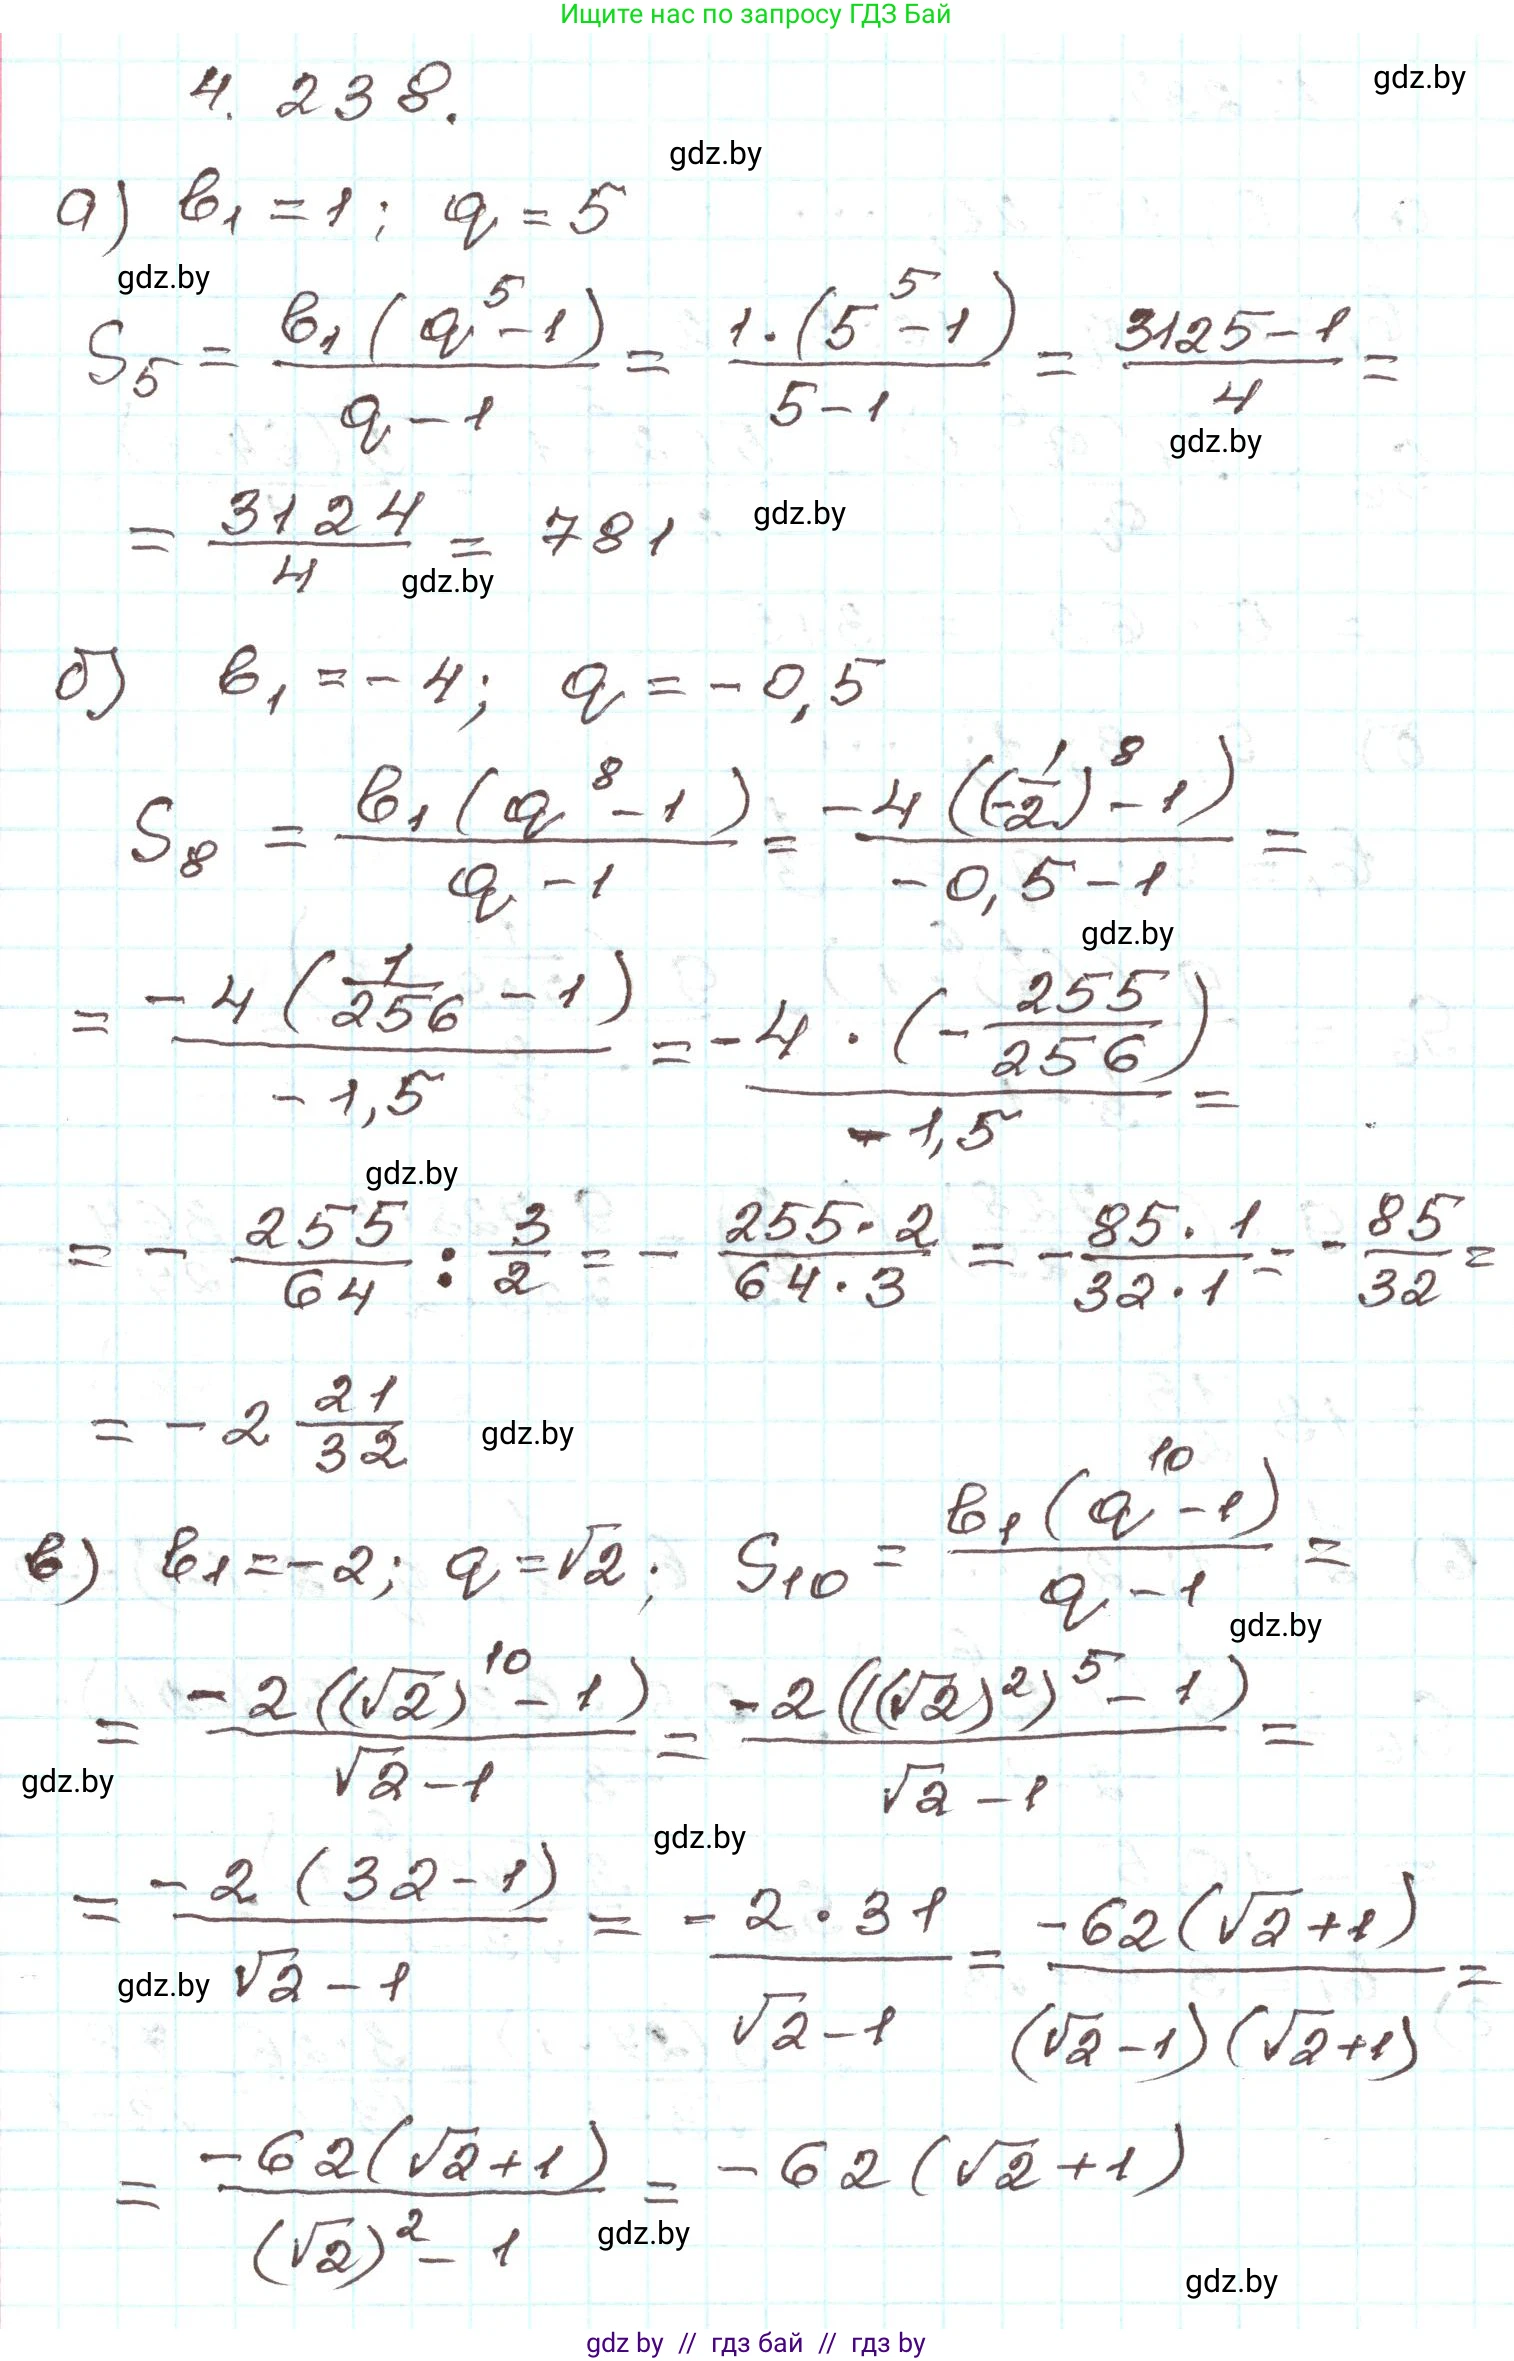 Ищите нас по запросу ГДЗ Бай
4. 238.
gdz.by
gdz.by
а) b₁ = 1; q = 5
gdz.by
S₅ = b₁(q⁵ - 1) / (q - 1) = 1·(5⁵ - 1) / (5 - 1) = (3125 - 1) / 4 =
gdz.by
= 3124 / 4 = 781
gdz.by
gdz.by
б) b₁ = -4; q = -0,5
S₈ = b₁(q⁸ - 1) / (q - 1) = -4((-1/2)⁸ - 1) / (-0,5 - 1) =
gdz.by
= -4(1/256 - 1) / (-1,5) = -4·(-255/256) / (-1,5) =
gdz.by
= - 255/64 : 3/2 = - (255·2)/(64·3) = - (85·1)/(32·1) = - 85/32 =
= -2 21/32
gdz.by
в) b₁ = -2; q = √2; S₁₀ = b₁(q¹⁰ - 1) / (q - 1) =
gdz.by
= -2((√2)¹⁰ - 1) / (√2 - 1) = -2(((√2)²)⁵ - 1) / (√2 - 1) =
gdz.by
gdz.by
= -2(32 - 1) / (√2 - 1) = -2·31 / (√2 - 1) = -62(√2 + 1) / (√2 - 1)(√2 + 1) =
gdz.by
= -62(√2 + 1) / ((√2)² - 1) = -62(√2 + 1)
gdz.by
gdz.by
gdz by // гдз бай // гдз by